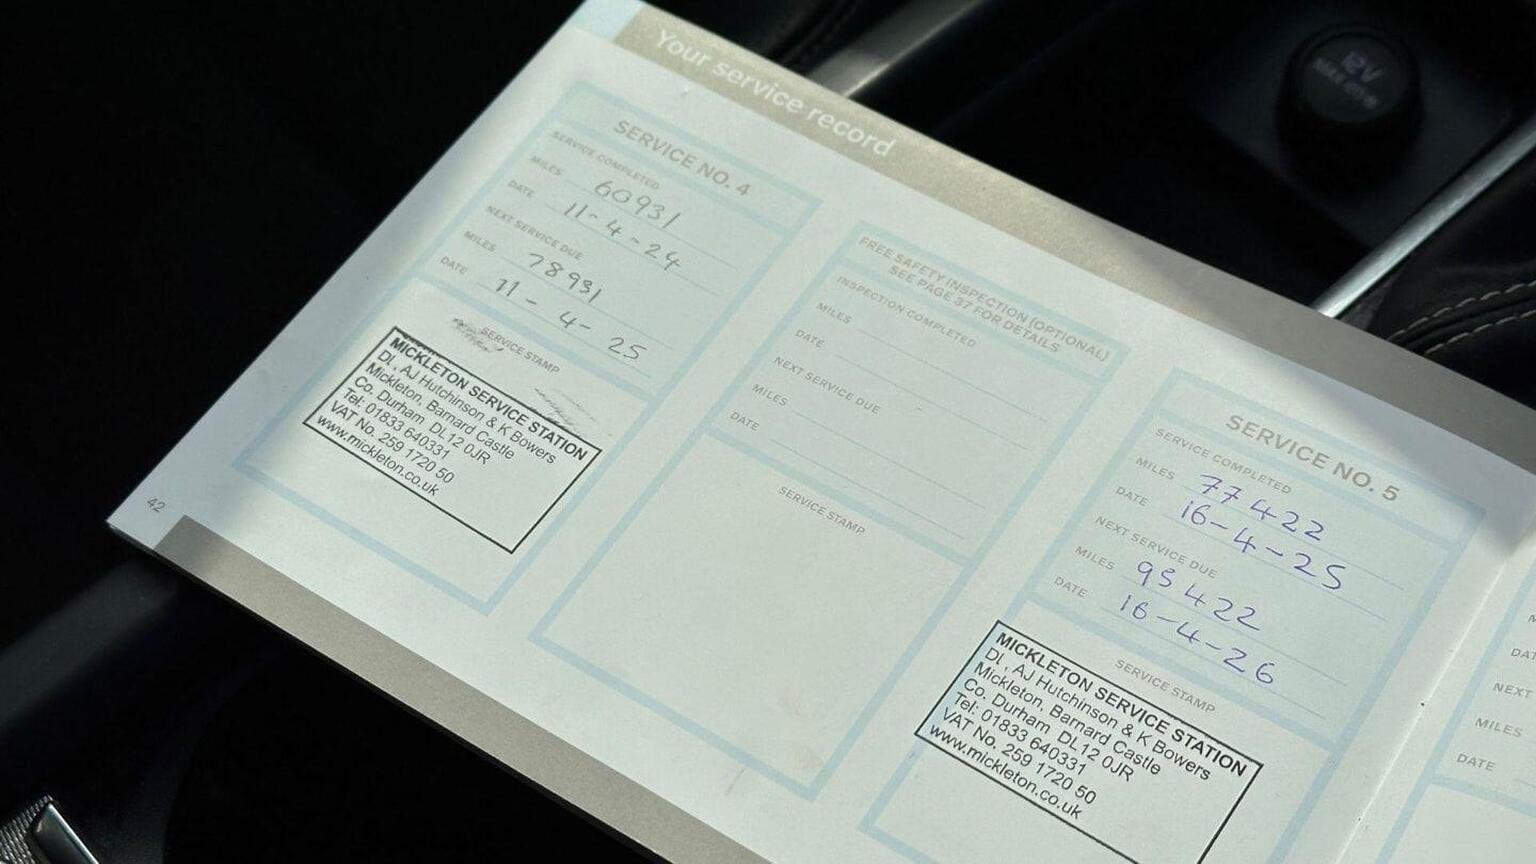 Your service record
SERVICE NO. 4
SERVICE COMPLETED
MILES 60931
DATE 11-4-24
NEXT SERVICE DUE
MILES 78931
DATE 11-4-25
SERVICE STAMP
MICKLETON SERVICE STATION
DJ, AJ Hutchinson & K Bowers
Mickleton, Barnard Castle
Co. Durham DL12 0JR
Tel: 01833 640331
VAT No. 259 1720 50
www.mickleton.co.uk
42
FREE SAFETY INSPECTION (OPTIONAL)
SEE PAGE 37 FOR DETAILS
INSPECTION COMPLETED
MILES
DATE
NEXT SERVICE DUE
MILES
DATE
SERVICE STAMP
SERVICE NO. 5
SERVICE COMPLETED
MILES 77422
DATE 16-4-25
NEXT SERVICE DUE
MILES 95422
DATE 16-4-26
SERVICE STAMP
MICKLETON SERVICE STATION
DJ, AJ Hutchinson & K Bowers
Mickleton, Barnard Castle
Co. Durham DL12 0JR
Tel: 01833 640331
VAT No. 259 1720 50
www.mickleton.co.uk
NEXT
MILES
DATE
12V